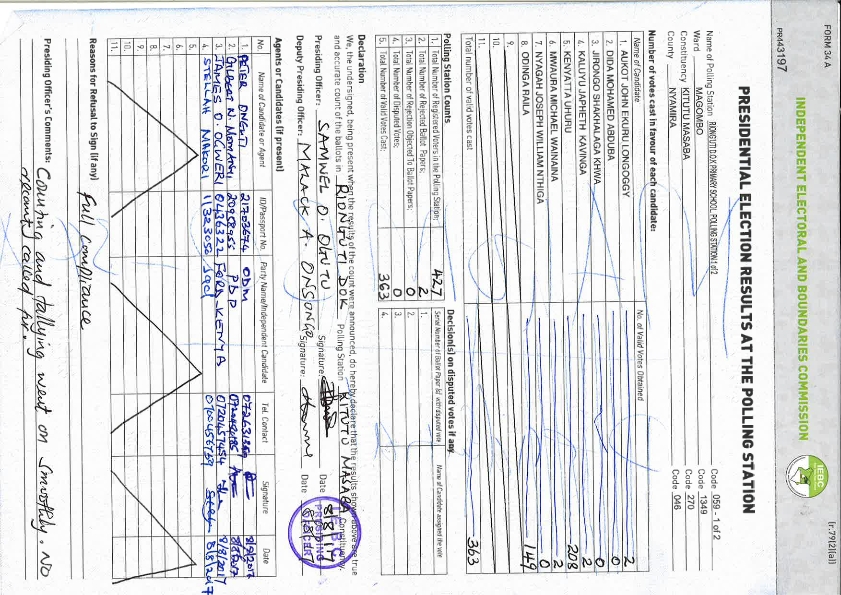 FORM 34 A
(r.79(2)(a))
INDEPENDENT ELECTORAL AND BOUNDARIES COMMISSION
IEBC
PR443197
PRESIDENTIAL ELECTION RESULTS AT THE POLLING STATION
Name of Polling Station RIONGUTI D.O.K PRIMARY SCHOOL POLLING STATION 1 of 2 Code 059 - 1 of 2
Ward MAGOMBO Code 1349
Constituency KITUTU MASABA Code 270
County NYAMIRA Code 046
Number of votes cast in favour of each candidate:
Name of Candidate No. of Valid Votes Obtained
1. AUKOT JOHN EKURU LONGOGGY 2
2. DIDA MOHAMED ABDUBA 0
3. JIRONGO SHAKHALAGA KHWA 0
4. KALUYU JAPHETH KAVINGA 2
5. KENYATTA UHURU 208
6. MWAURA MICHAEL WAINAINA 2
7. NYAGAH JOSEPH WILLIAM NTHIGA 0
8. ODINGA RAILA 149
9.
10.
11.
Total number of valid votes cast 363
Polling Station Counts
1. Total Number of Registered Voters in the Polling Station; 427
2. Total Number of Rejected Ballot Papers; 2
3. Total Number of Rejection Objected To Ballot Papers; 0
4. Total Number of Disputed Votes; 0
5. Total Number of Valid Votes Cast; 363
Decision(s) on disputed votes if any.
Serial Number of Ballot Paper (s) with disputed vote Name of Candidate assigned the vote
1.
2.
3.
4.
Declaration
We, the undersigned, being present when the results of the count were announced, do hereby declare that the results shown above are true
and accurate count of the ballots in RIONGUTI DOK Polling Station KITUTU MASABA Constituency.
Presiding Officer: SAMWEL O. OGUTU Signature: Date 8/8/17
Deputy Presiding Officer: MALACK A. ONSONGO Signature: Date 8/8/17
Agents or Candidates (if present)
No. Name of Candidate or Agent ID/Passport No. Party Name/Independent Candidate Tel. Contact Signature Date
1. PETER 21703674 ODM 8/8/2017
2. GILBERT N. 20958955 PDP
3. JAMES O. OGWERI 0436322 FORD KENYA 8/8/2017
4. STELLAH MAKORI 11323052 0700456759 8/8/2017
5.
6.
7.
8.
9.
10.
11.
Reasons for Refusal to Sign (if any) Full compliance
Presiding Officer's Comments: Counting and tallying went on smoothly. No
recount called for.